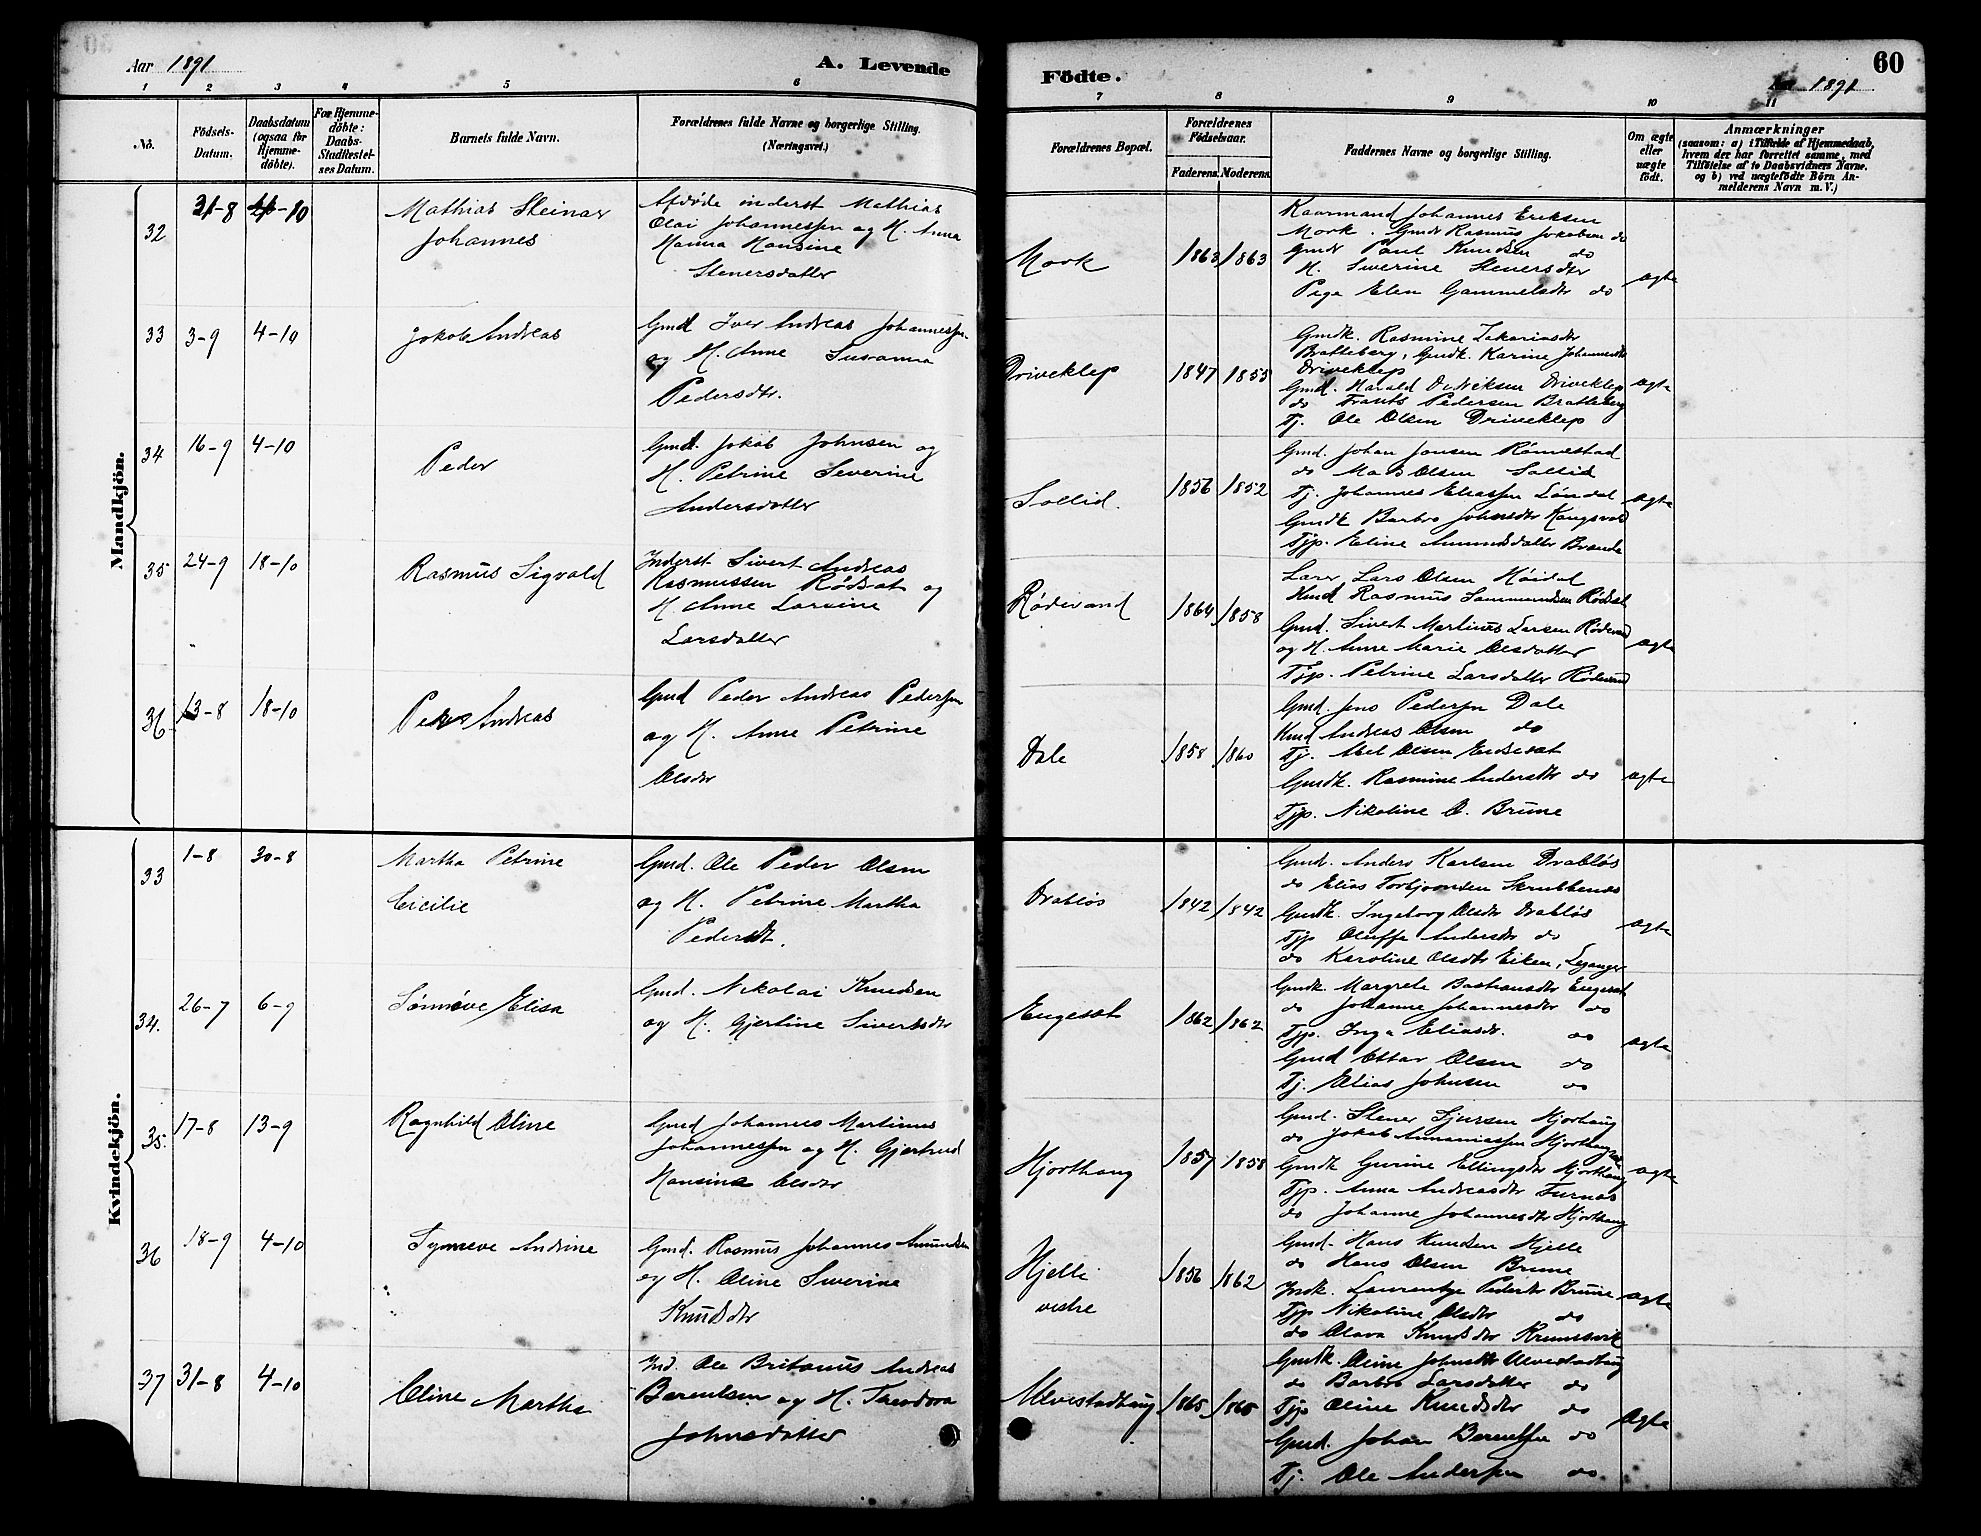 Aar 1891
A. Levende
Födte.
60
1891
1 2 3 4 5 6 7 8 9 10 11
No.
Födsels-Datum.
Daabsdatum (ogsaa for Hjemmedöbte).
For Hjemmedöbte: Daabs-Stadfæstelses Datum.
Barnets fulde Navn.
Forældrenes fulde Navne og borgerlige Stilling. (Næringsvei.)
Forældrenes Bopæl.
Forældrenes Fødselsaar.
Faderens. Moderens.
Faddernes Navne og borgerlige Stilling.
Om ægte eller uægte født.
Anmærkninger
(saasom: a) i Tilfælde af Hjemmedaab, hvem der har forrettet samme, med Tilföielse af to Daabsvidners Navne, og b) ved uægtefödte Börn Anmelderens Navn m. V.)
Mandkjön.
32 31-8 -10 Mathias Steinar Johannes
Afdøde inderst Mathias
Olai Johannessen og H. Anna
Hansine
Stenersdatter
Mork 1863 1863
Kaarmand Johannes Eriksen
Mork. Gmd Rasmus Jakobsen do
Gmd Paul Knudsen do
H. Severine Stenersdtr
Pige Elen Gammelsdtr do
ægte
33 3-9 4-10 Jokob Andreas
Gmd Iver Andreas Johannessen
og H. Anne Susanna
Pedersdtr.
Driveklep 1847 1855
Gmdk. Rasmine Zakariasdtr
Bratteberg, Gmdk. Karine Johannesdtr
Driveklep
Gmd. Harald Driveklep
do Frants Pedersen Bratteberg
Tj. Ole Olsen Driveklep
ægte
34 16-9 4-10 Peder
Gmd. Jokob Johnsen og
H. Petrine Severine
Andersdatter
Sollid. 1856 1852
Gmd. Johan Jonsen Rønnestad
do Mats Olsen Sollid
Tj. Johannes Eliassen
Gmdk Barbro Johnsdtr
Tjp. Eline
ægte
35 24-9 18-10 Rasmus Sigvald
Inderst Sivert Andreas
Rasmussen Rødsæt og
H. Anne Larsine
Larsdatter
Rødevand 1864 1858
Lærer Lars Olsen Høidal
Kmd Rasmus Rødsæt
Gmd. Sivert Martinus Larsen Rødevand
og H. Anne Marie Olsdatter
Tjp. Petrine Larsdatter Rødevand
ægte
36. 13-8 18-10 Peder Andreas
Gmd Peder Andreas Pedersen
og H. Anne Petrine
Olsdtr
Dale 1858 1860
Gmd. Jens Pedersen Dale
Kmd Andreas Olsen do
Tj. Abel Olsen Endresæt
Gmdk. Rasmine Andersdtr do
Tjp. Nikoline O. Brune
ægte
Kvindekjön.
33 1-8 30-8 Martha Petrine
Cicilie
Gmd. Ole Peder Olsen
og H. Petrine Martha
Pedersdt.
Drabløs 1842 1842
Gmd. Anders Karlsen Drabløs
do Elias Torbjørnsen Skrubbenes
Gmdk. Ingeborg Olsdtr Drabløs
Tjp Oluffa Andersdtr do
do Karoline Olsdtr Eiken, Leganger
ægte
34. 26-7 6-9 Sønnøve Elisa
Gmd. Nikolai Knudsen
og H. Gjertine Sivertsdtr
Engesæt 1862 1862
Gmdk. Margrete Bastiansdtr Engesæt
do Johanne Johannesdtr do
Tjp. Inga Eliasdtr. do
Gmd Ottar Olsen do
Tj. Elias Johnsen do
ægte
35. 17-8 13-9 Ragnhild Oline
Gmd Johannes Martinus
Johannessen og H. Gjertrud
Hansine Olsdtr
Hjorthaug 1857 1858
Gmd. Stener Sjursen Hjorthaug
do Jokob Annaniassen Hjorthaug
Gmdk Gurine Ellingsdtr Hjorthaug
Tjp. Anna Andreasdtr Furnæs
do Johanne Johannesdtr Hjorthaug
ægte
36 18-9 4-10 Synneve Andrine
Gmd. Rasmus Johannes Amundsen
og H. Oline Severine
Knudsdtr
Hjelle
vestre 1856 1862
Gmd. Hans Knudsen Hjelle
do Hans Olsen Brune
Indk. Laurentze Pedersdtr Brune
Tjp Nikoline Olsdtr do
do Olava Knudsdtr
ægte
37 31-8 4-10 Oline Martha
Ind. Ole Britanus Andreas
Berentsen og H. Teodora
Johnsdatter
Ulvestadhaug 1865 1865
Gmdk. Oline Johnsdtr Ulvestadhaug
do Barbro Larsdatter do
Tjp Oline Knudsdtr do
Gmd. Johan Berentsen do
Tj. Ole Andersen do
ægte